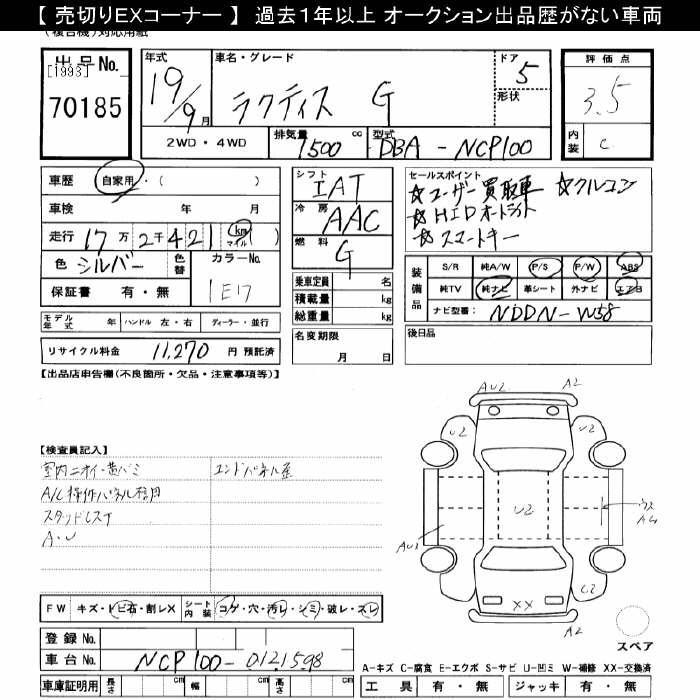 【 売切りEXコーナー 】 過去１年以上 オークション出品歴がない車両
(複合機)対応用紙
出品No.
[1993]
70185
年式
19/9月
車名・グレード
ラクティス G
ドア
5
形状
2WD・4WD
排気量
1500 cc
型式
DBA-NCP100
評価点
3.5
内装
C
車歴
自家用・( )
車検 年 月
走行 17万2千421 km マイル ( )
色 シルバー
色替
カラーNo.
1E17
保証書 有・無
シフト
IAT
冷房
AAC
燃料
G
乗車定員 名
積載量 kg
総重量 kg
セールスポイント
☆ユーザー買取車 ☆クルコン
☆HIDオートライト
☆スマートキー
装備品
S/R 純A/W P/S P/W ABS
純TV 純ナビ 革シート 外ナビ エアB
ナビ型番: NDDN-W58
モデル年式 年 ハンドル 左・右 ディーラー・並行
名変期限
月 日
後日品
リサイクル料金 11,270 円 預託済
【出品店申告欄(不良箇所・欠品・注意事項等)】
【検査員記入】
室内ニオイ・黄バミ
エンドパネル歪
A/C操作パネル
スタッドレス
A・U
AU2
A2
U2
U2
U2
AU1
A4
C2
XX
A2
スペア
FW キズ・トビ石・割レX
シート内装 コゲ・穴・汚レ・シミ・破レ・スレ
登録No.
車台No. NCP100-0121598
車庫証明用 長さ cm 幅 cm 高さ cm
A-キズ C-腐食 E-エクボ S-サビ U-凹ミ W-補修 XX-交換済
工具 有・無 ジャッキ 有・無